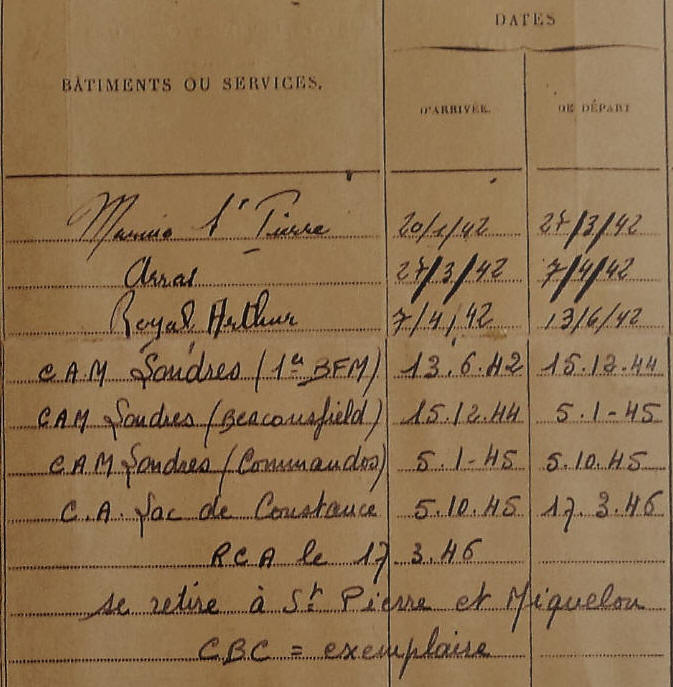 DATES
BÂTIMENTS OU SERVICES.
D'ARRIVÉE.
DE DÉPART
Marine St Pierre 20/1/42 27/3/42
Arras 27/3/42 7/4/42
Royal Arthur 7/4/42 13/6/42
CAM Londres (1er BFM) 13.6.42 15.12.44
CAM Londres (Beaconsfield) 15.12.44 5.1-45
CAM Londres (Commandos) 5.1-45 5.10.45
C.A. Lac de Constance 5.10.45 17.3.46
RCA le 17.3.46
se retire à St Pierre et Miquelon
CBC = exemplaire